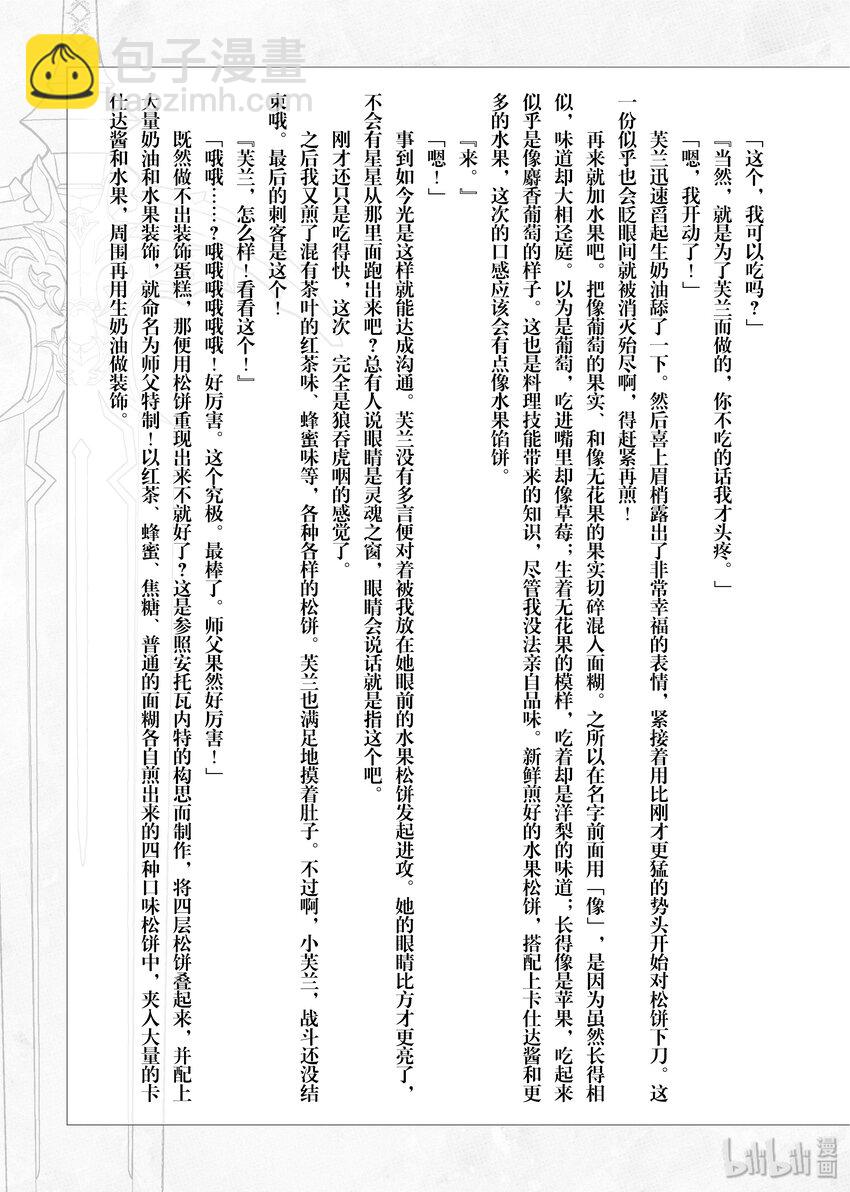 包子漫畫
baozimh.com
「这个，我可以吃吗？」
『当然，就是为了芙兰而做的，你不吃的话我才头疼。』
「嗯，我开动了！」
芙兰迅速舀起生奶油舔了一下。然后喜上眉梢露出了非常幸福的表情，紧接着用比刚才更猛的势头开始对松饼下刀。这
一份似乎也会眨眼间就被消灭殆尽啊，得赶紧再煎！
再来就加水果吧。把像葡萄的果实、和像无花果的果实切碎混入面糊。之所以在名字前面用「像」，是因为虽然长得相
似，味道却大相迳庭。以为是葡萄，吃进嘴里却像草莓；生着无花果的模样，吃着却是洋梨的味道；长得像是苹果，吃起来
似乎是像麝香葡萄的样子。这也是料理技能带来的知识，尽管我没法亲自品味。新鲜煎好的水果松饼，搭配上卡仕达酱和更
多的水果，这次的口感应该会有点像水果馅饼。
『来。』
「嗯！」
事到如今光是这样就能达成沟通。芙兰没有多言便对着被我放在她眼前的水果松饼发起进攻。她的眼睛比方才更亮了，
不会有星星从那里面跑出来吧？总有人说眼睛是灵魂之窗，眼睛会说话就是指这个吧。
刚才还只是吃得快，这次　完全是狼吞虎咽的感觉了。
之后我又煎了混有茶叶的红茶味、蜂蜜味等，各种各样的松饼。芙兰也满足地摸着肚子。不过啊，小芙兰，战斗还没结
束哦。最后的刺客是这个！
『芙兰，怎么样！看看这个！』
「哦哦……？哦哦哦哦哦哦！好厉害。这个究极。最棒了。师父果然好厉害！」
既然做不出装饰蛋糕，那便用松饼重现出来不就好了？这是参照安托瓦内特的构思而制作，将四层松饼叠起来，并配上
大量奶油和水果装饰，就命名为师父特制！以红茶、蜂蜜、焦糖、普通的面糊各自煎出来的四种口味松饼中，夹入大量的卡
仕达酱和水果，周围再用生奶油做装饰。
bilibili漫画